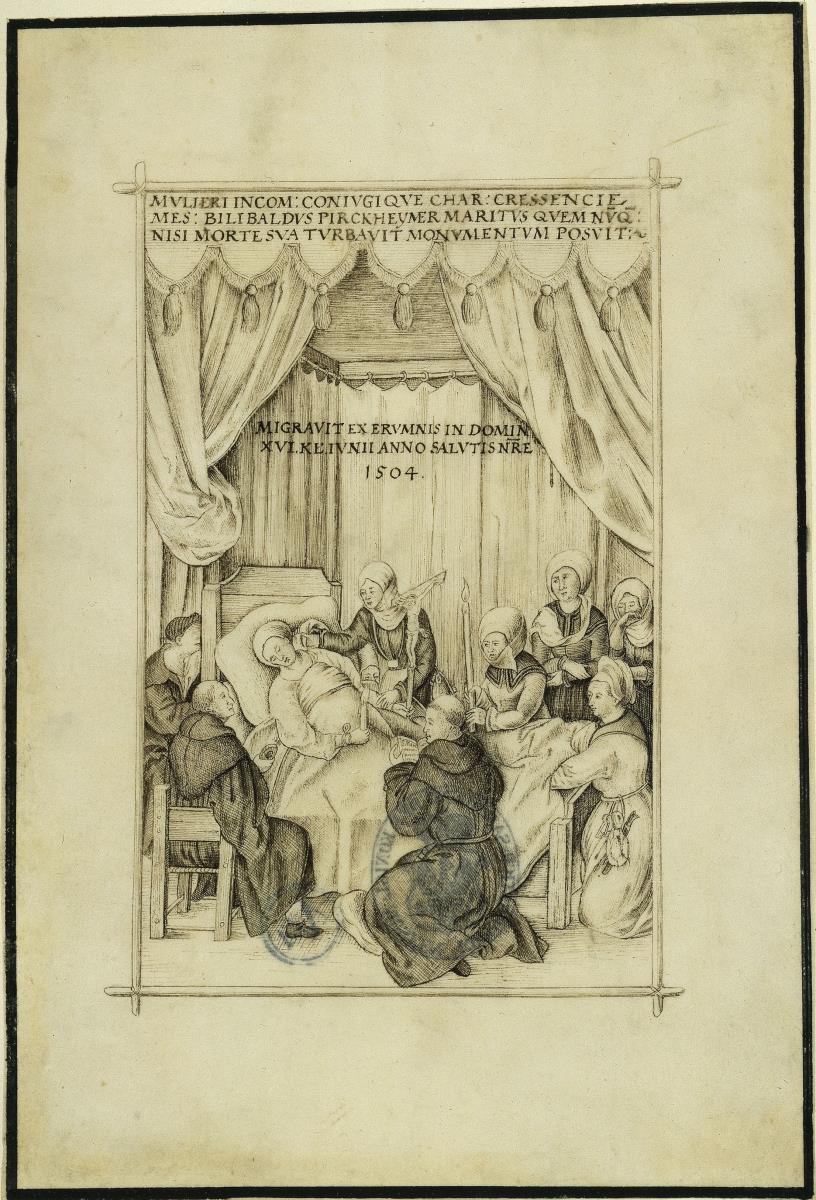 MVLIERI INCOM: CONIVGIQVE CHAR: CRESSENCIE
MES: BILIBALDVS PIRCKHEYMER MARITVS QVEM NV̄Q̄:
NISI MORTE SVA TVRBAVIT MONVMENTVM POSVIT:~
MIGRAVIT EX ERVMNIS IN DOMIN̄
XVI. KE. IVNII ANNO SALVTIS NR̄E
1504.